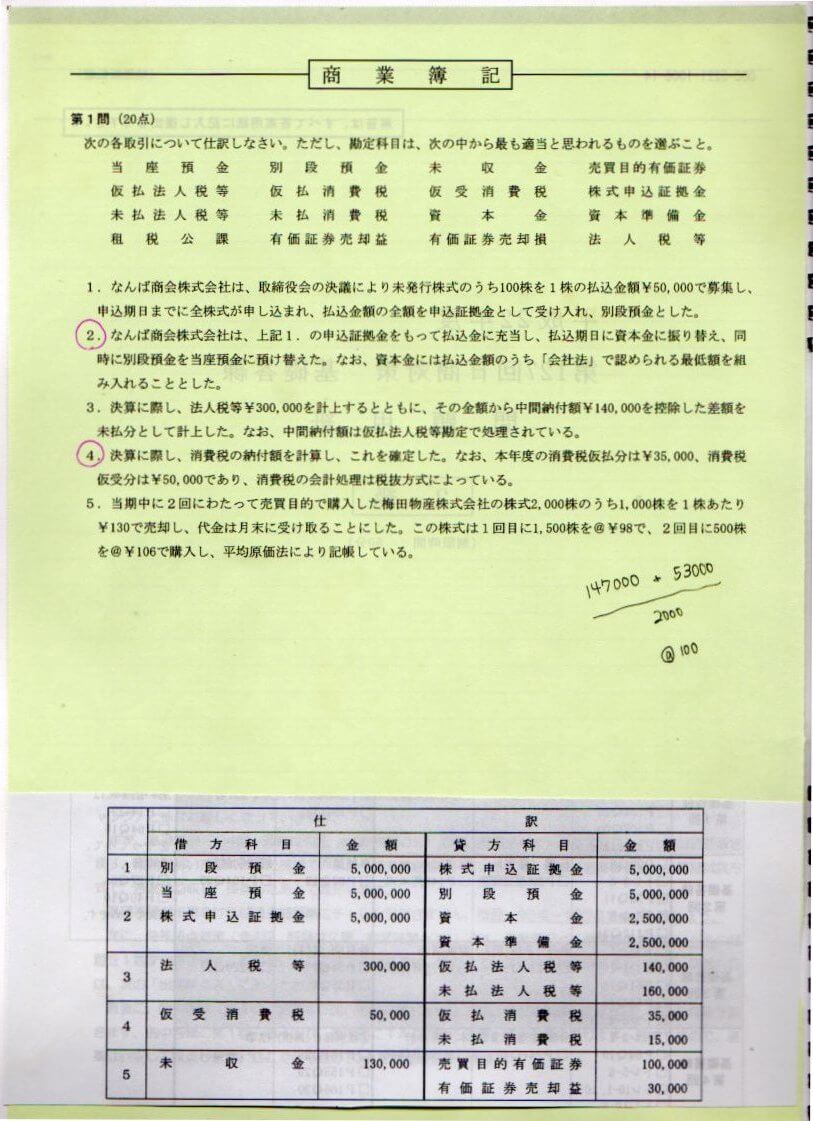 商業簿記
第1問（20点）
次の各取引について仕訳しなさい。ただし、勘定科目は、次の中から最も適当と思われるものを選ぶこと。
当座預金 別段預金 未収金 売買目的有価証券
仮払法人税等 仮払消費税 仮受消費税 株式申込証拠金
未払法人税等 未払消費税 資本金 資本準備金
租税公課 有価証券売却益 有価証券売却損 法人税等
1．なんば商会株式会社は、取締役会の決議により未発行株式のうち100株を1株の払込金額¥50,000で募集し、
申込期日までに全株式が申し込まれ、払込金額の全額を申込証拠金として受け入れ、別段預金とした。
2．なんば商会株式会社は、上記1．の申込証拠金をもって払込金に充当し、払込期日に資本金に振り替え、同
時に別段預金を当座預金に預け替えた。なお、資本金には払込金額のうち「会社法」で認められる最低額を組
み入れることとした。
3．決算に際し、法人税等¥300,000を計上するとともに、その金額から中間納付額¥140,000を控除した差額を
未払分として計上した。なお、中間納付額は仮払法人税等勘定で処理されている。
4．決算に際し、消費税の納付額を計算し、これを確定した。なお、本年度の消費税仮払分は¥35,000、消費税
仮受分は¥50,000であり、消費税の会計処理は税抜方式によっている。
5．当期中に2回にわたって売買目的で購入した梅田物産株式会社の株式2,000株のうち1,000株を1株あたり
¥130で売却し、代金は月末に受け取ることにした。この株式は1回目に1,500株を@¥98で、2回目に500株
を@¥106で購入し、平均原価法により記帳している。
147000 + 53000
2000
@100
仕訳
借方科目 金額 貸方科目 金額
1 別段預金 5,000,000 株式申込証拠金 5,000,000
当座預金 5,000,000 別段預金 5,000,000
2 株式申込証拠金 5,000,000 資本金 2,500,000
資本準備金 2,500,000
3 法人税等 300,000 仮払法人税等 140,000
未払法人税等 160,000
4 仮受消費税 50,000 仮払消費税 35,000
未払消費税 15,000
5 未収金 130,000 売買目的有価証券 100,000
有価証券売却益 30,000